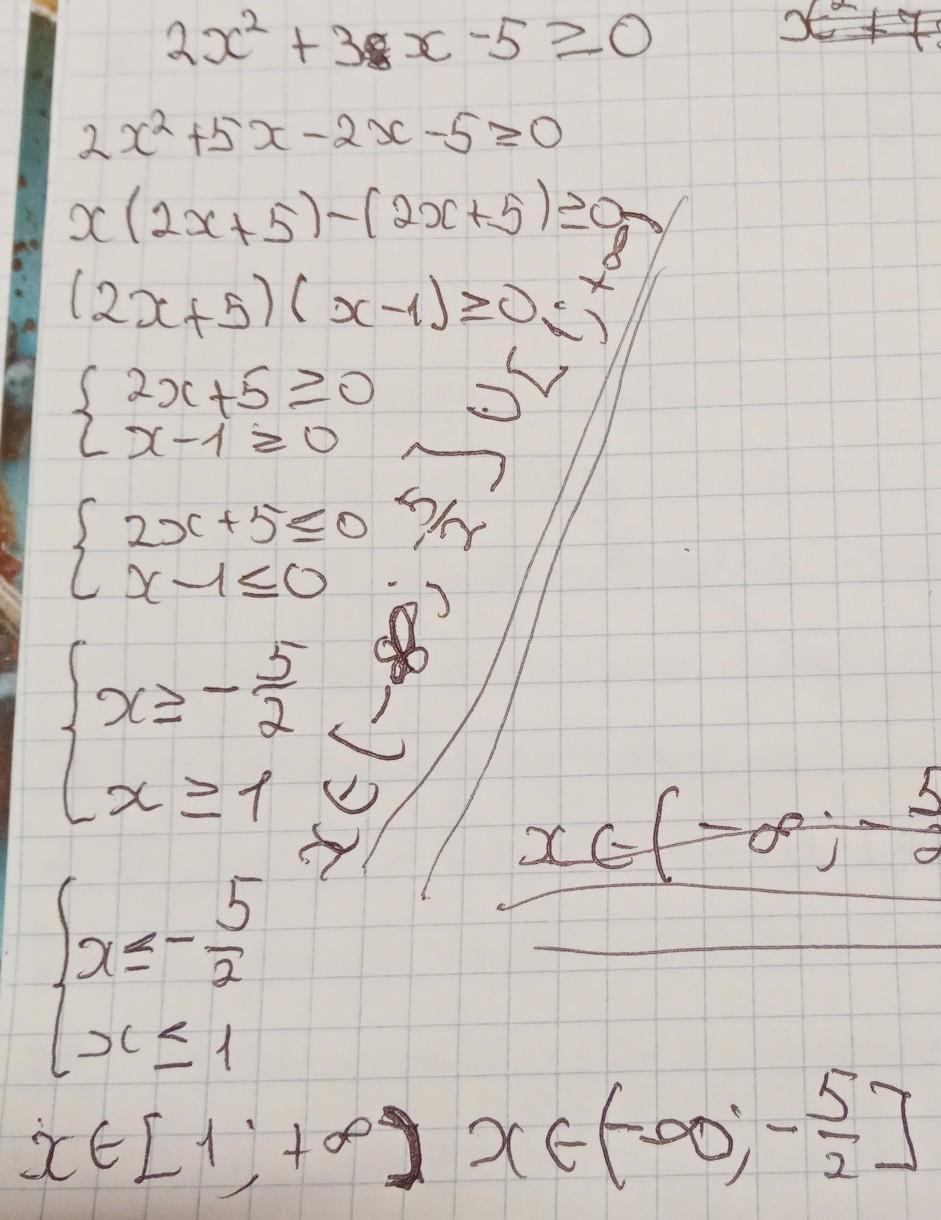 2x² + 3x - 5 ≥ 0
2x² + 5x - 2x - 5 ≥ 0
x(2x+5) - (2x+5) ≥ 0
(2x+5)(x-1) ≥ 0
{ 2x+5 ≥ 0
x-1 ≥ 0
{ 2x+5 ≤ 0
x-1 ≤ 0
{ x ≥ -5/2
x ≥ 1
{ x ≤ -5/2
x ≤ 1
x ∈ [1; +∞) x ∈ (-∞; -5/2]
x ∈ (-∞; 5/2] ∪ [1; +∞)
x ∈ (-∞; -5/2